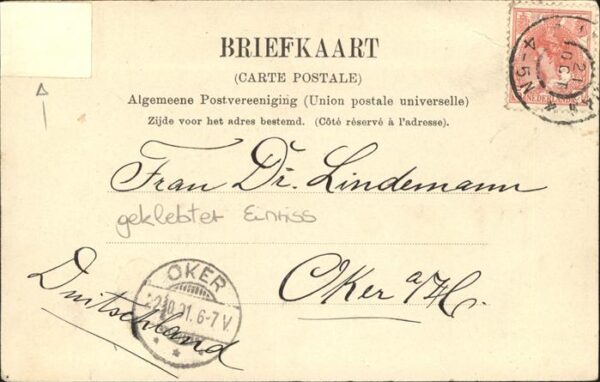 BRIEFKAART
(CARTE POSTALE)
Algemeene Postvereeniging (Union postale universelle)
Zijde voor het adres bestemd. (Côté réservé à l'adresse).
NEDERLAND
21 OCT
4-5N
Frau Dr. Lindemann
geklebter Einriss
Oker a/H.
Duitschland
OKER
22.10.01.6-7V.